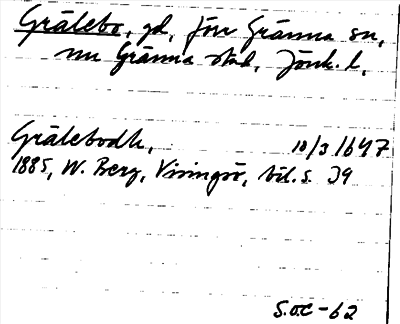 Grälebo, gd, förr Gränna sn,
nu Gränna stad, Jönk. l.
Grälebodh, 10/3 1647
1885, W. Berg, Visingsö, bil. s. 39
S.O.C-62